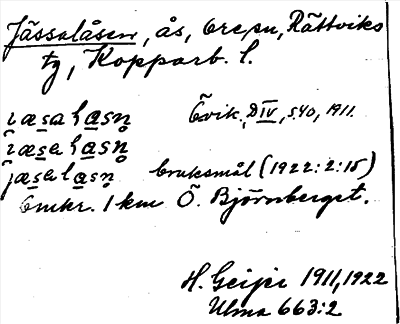 Jässalåsen, ås, Ore sn, Rättviks
tg, Kopparb. l.
ıæsalasn̥ Övik, D IV, s. 40, 1911.
ıæsalasn̥
jæsalasn̥ bruksmål (1922:2:15)
Omkr. 1 km Ö. Björnberget.
H. Geijer 1911, 1922
Ulma 663:2